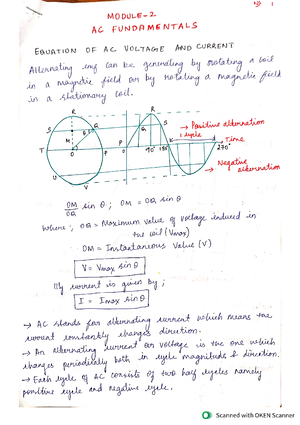 1
MODULE-2
AC FUNDAMENTALS
EQUATION OF AC VOLTAGE AND CURRENT
Alternating emf can be generating by rotating a coil
in a magnetic field or by rotating a magnetic field
in a stationary coil.
R
S Q
M
T O P
U
V
R
Q S
→ Positive alternation
1 cycle
P O 90° 180° K Time
270°
→ Negative
alternation
OM/OQ sin θ ; OM = OQ sin θ
where ; OQ = Maximum value of voltage induced in
the coil (Vmax)
OM = Instantaneous value (V)
V = Vmax sin θ
Illy current is given by ;
I = Imax sin θ
→ AC stands for alternating current which means the
current constantly changes direction.
→ An alternating current or voltage is the one which
changes periodically both in cycle magnitude & direction.
→ Each cycle of AC consists of two half cycles namely
positive cycle and negative cycle.
Scanned with OKEN Scanner